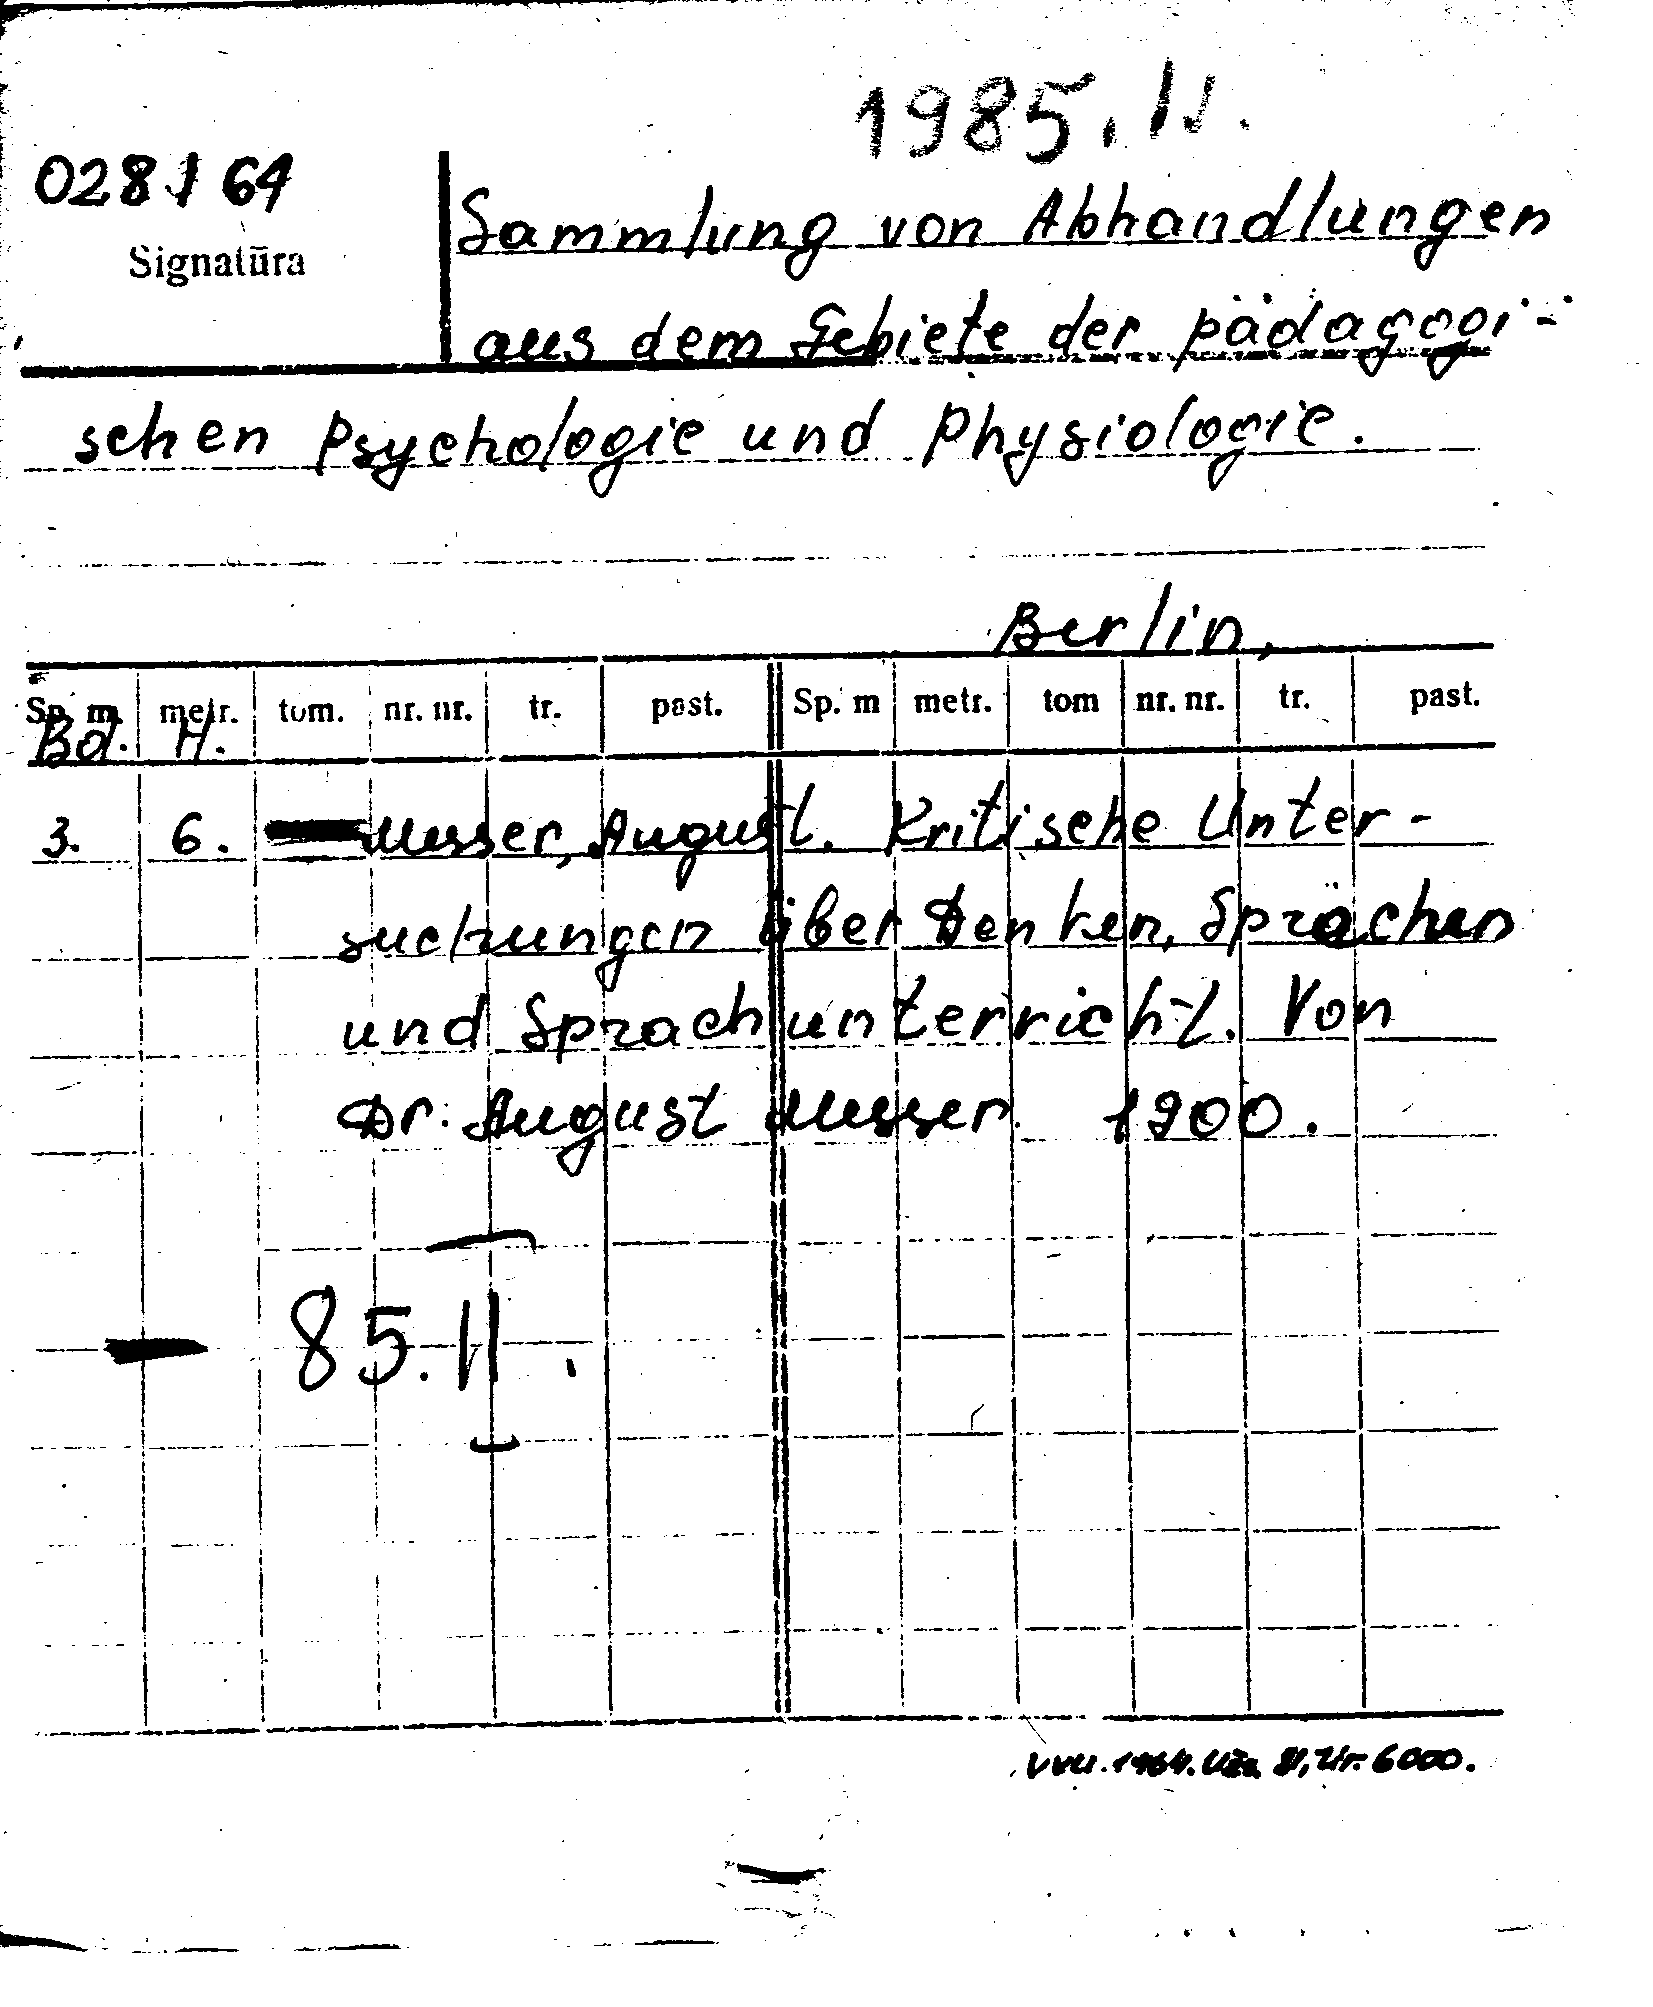 1985. IV.
028.1 64
Signatūra
Sammlung von Abhandlungen
aus dem Gebiete der pädagogi-
schen Psychologie und Physiologie.
Berlin,
Sp. m. metr. tom. nr. nr. tr. past. Sp. m metr. tom nr. nr. tr. past.
Bd. H.
3. 6. Messer, August. Kritische Unter-
suchungen über Denken, Sprächen
und Sprachunterricht. Von
Dr. August Messer. 1900.
85.II.
VVU. 1964. Užs. 81, tir. 6000.